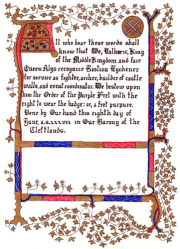 All who hear these words shall
know that We, Valharic, King
of the Middle Kingdom and fair
Queen Alys recognize Bastian Eychener
for service as fighter, archer, builder of castle
walls, and revel coordinator. We bestow upon
him the Order of the Purple Fret with the
right to wear the badge: or, a fret purpure.
Done by Our hand this eighth day of
June, a.s. xxxvii in Our Barony of the
Cleftlands.